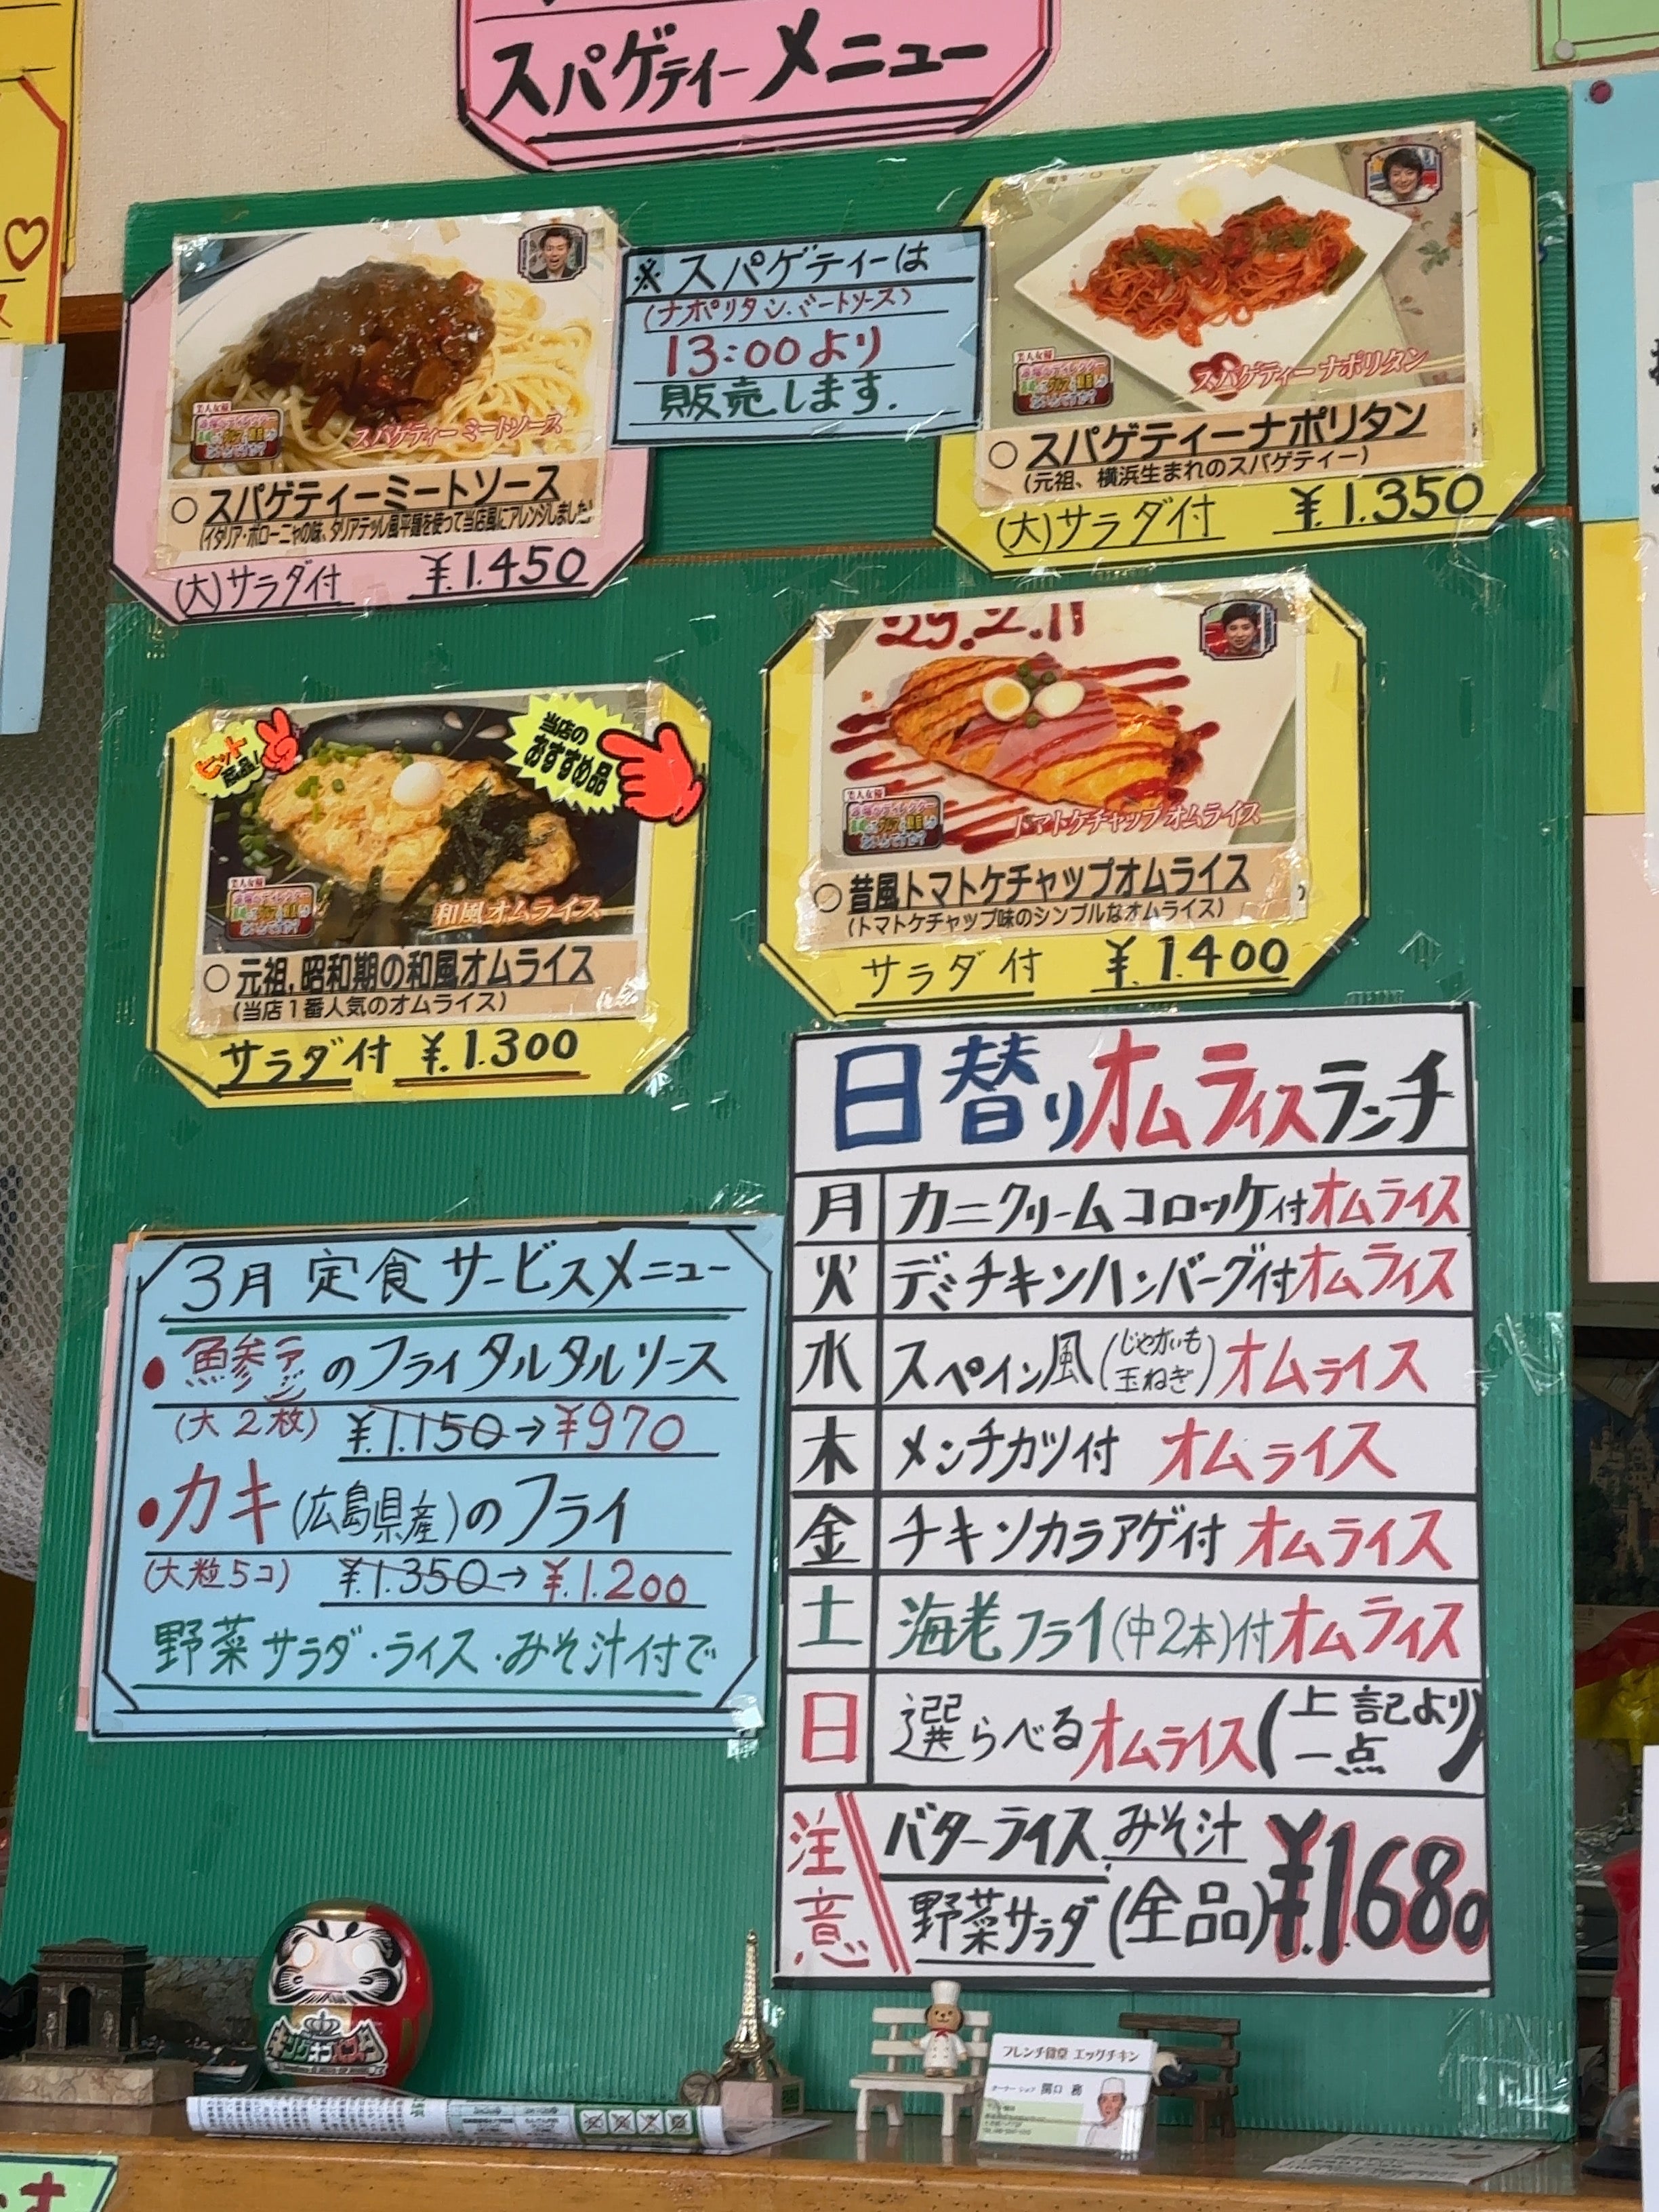 スパゲティーメニュー
※スパゲティーは
(ナポリタン.ミートソース)
13:00より
販売します.
スパゲティー ミートソース
○スパゲティーミートソース
(イタリア・ボローニャの味、タリアテッレ風平麺を使って当店風にアレンジしました)
(大)サラダ付 ¥.1.450
スパゲティー ナポリタン
○スパゲティーナポリタン
(元祖、横浜生まれのスパゲティー)
(大)サラダ付 ¥.1.350
ヒット商品!
当店の
おすすめ品
美人女優
和風オムライス
○元祖,昭和期の和風オムライス
(当店1番人気のオムライス)
サラダ付 ¥.1.300
29.2.11
美人女優
トマトケチャップ オムライス
○昔風トマトケチャップオムライス
(トマトケチャップ味のシンプルなオムライス)
サラダ付 ¥.1.400
日替りオムライスランチ
月 カニクリームコロッケ付オムライス
火 デミチキンハンバーグ付オムライス
水 スペイン風(じゃがいも玉ねぎ)オムライス
木 メンチカツ付 オムライス
金 チキンカラアゲ付 オムライス
土 海老フライ(中2本)付オムライス
日 選らべるオムライス(上記より一点)
注意 バターライス.みそ汁
野菜サラダ(全品)¥.1.680
3月 定食サービスメニュー
●鯵アジのフライタルタルソース
(大2枚) ¥.1.150→¥970
●カキ(広島県産)のフライ
(大粒5コ) ¥.1.350→¥.1.200
野菜サラダ・ライス・みそ汁付で
キングオブパスタ
フレンチ食堂 エッグチキン
オーナーシェフ 関口 務